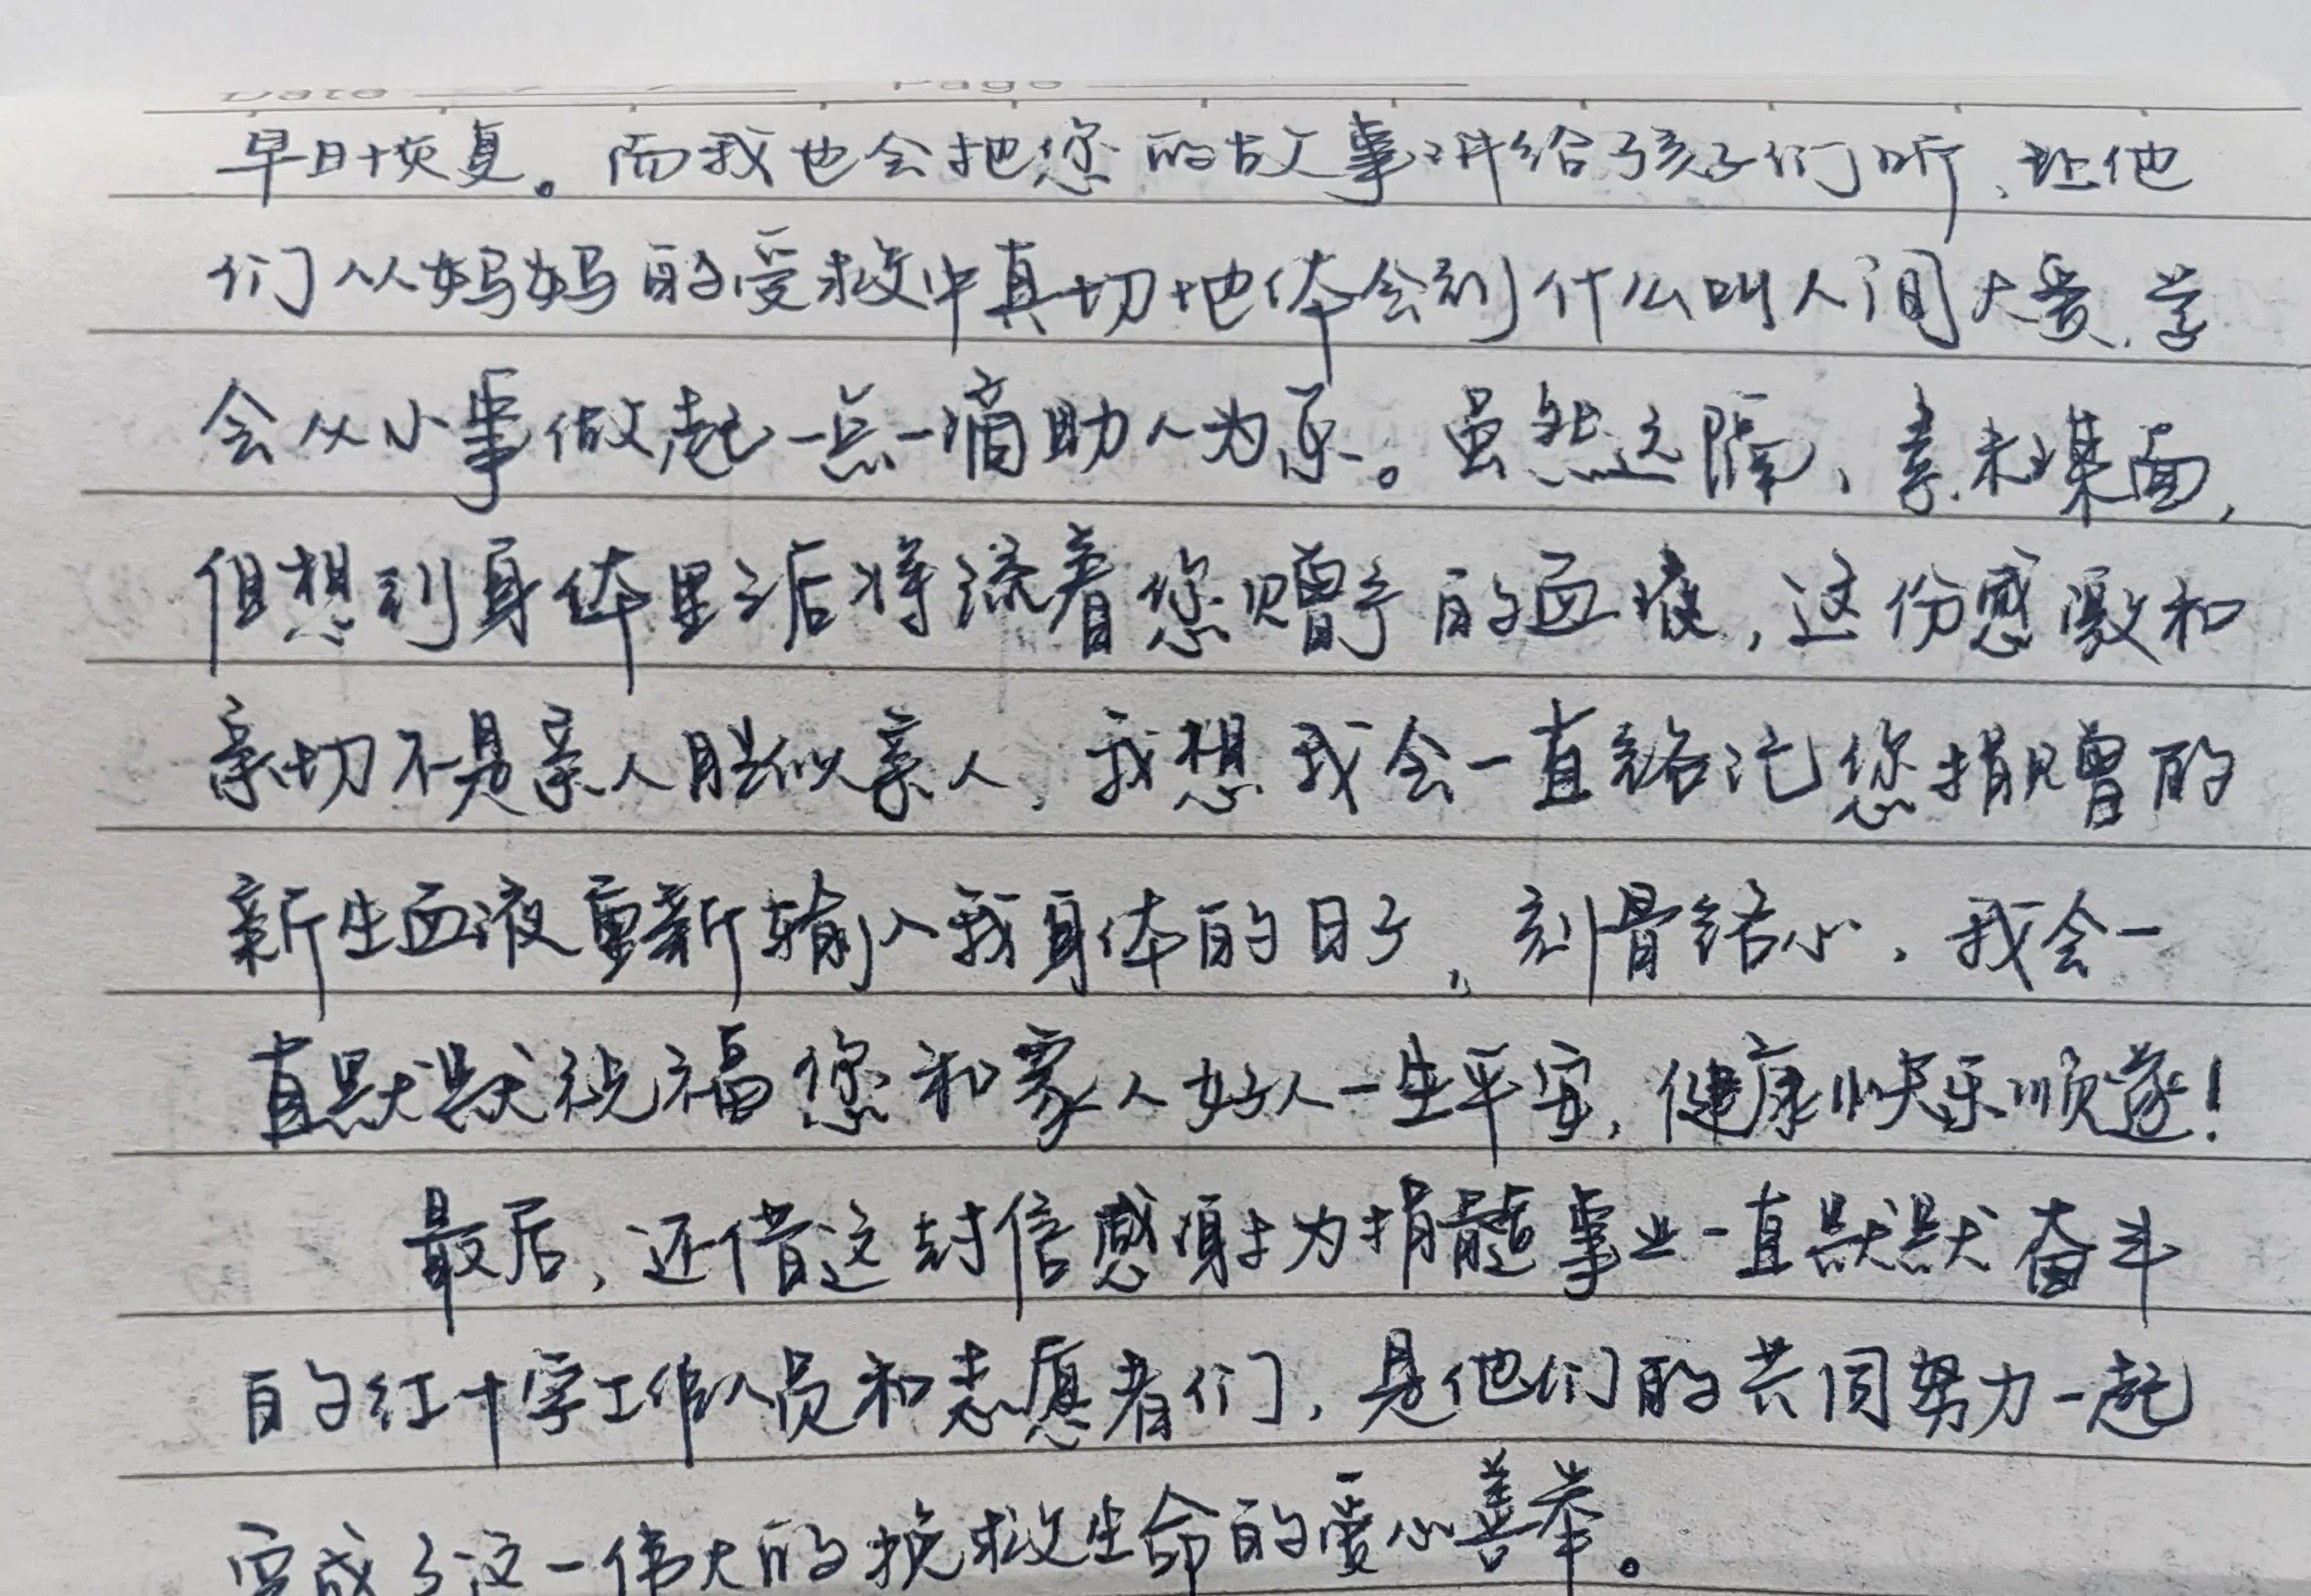 Date Page
早日恢复。而我也会把您的故事讲给孩子们听，让他
们从妈妈的受救中真切地体会到什么叫人间大爱，学
会从小事做起一点一滴助人为乐。虽然远隔，素未谋面，
但想到身体里之后将流着您赠予的血液，这份感激和
亲切不是亲人胜似亲人，我想我会一直铭记您捐赠的
新生血液重新输入我身体的日子，刻骨铭心，我会一
直默默祝福您和家人好人一生平安，健康快乐顺遂！
最后，还借这封信感谢为捐髓事业一直默默奋斗
的红十字工作人员和志愿者们，是他们的共同努力一起
完成了这一伟大的挽救生命的爱心善举。